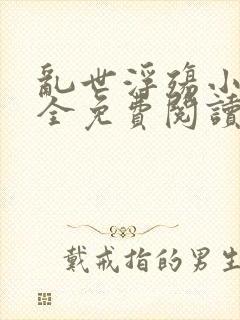 亂世浮殤小
全免費閱讀
戴戒指的男生